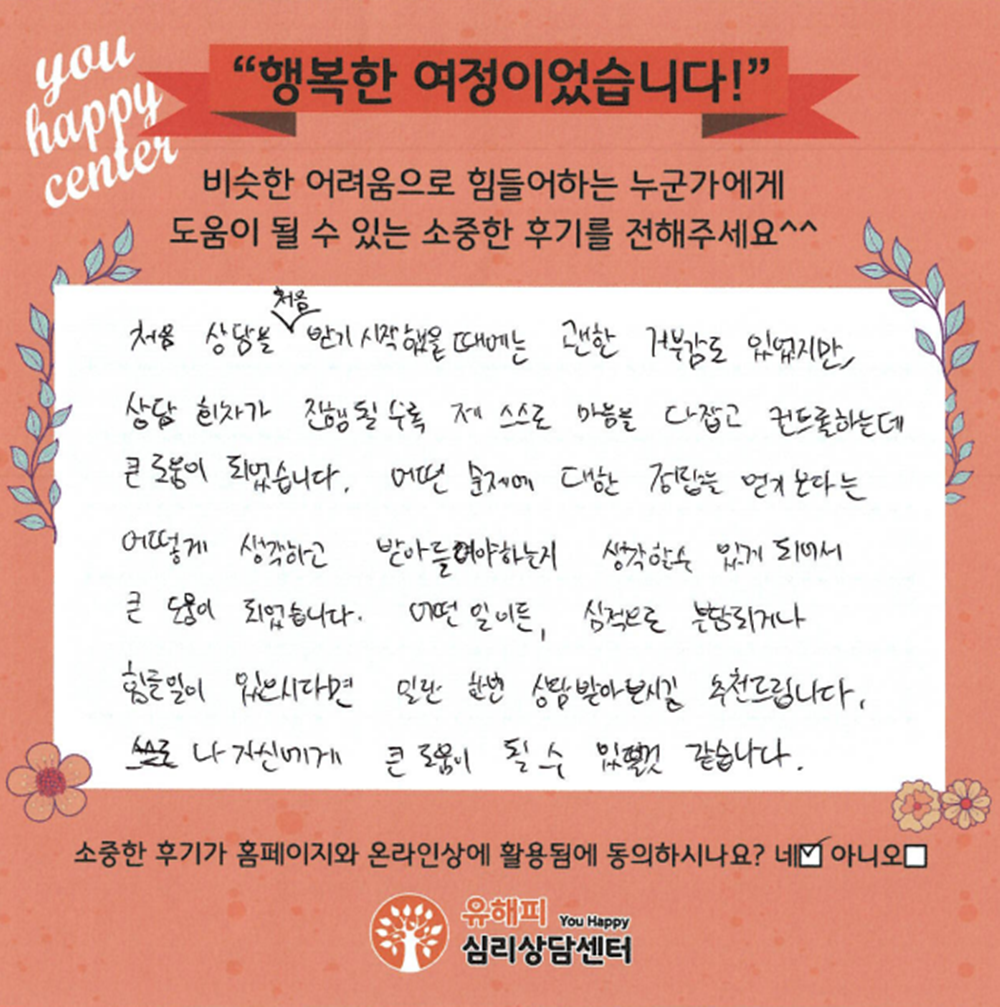 you
happy
center
“행복한 여정이었습니다!”
비슷한 어려움으로 힘들어하는 누군가에게
도움이 될 수 있는 소중한 후기를 전해주세요^^
처음
처음 상담을 받기 시작했을 때에는 괜한 거부감도 있었지만,
상담 회차가 진행될수록 제 스스로 마음을 다잡고 컨트롤하는데
큰 도움이 되었습니다. 어떤 문제에 대한 정답을 얻기 보다는
어떻게 생각하고 받아들여야하는지 생각할수 있게 되어서
큰 도움이 되었습니다. 어떤 일이든, 심적으로 부담되거나
힘든일이 있으시다면 일단 한번 상담받아보시길 추천드립니다.
나 자신에게 큰 도움이 될 수 있을것 같습니다.
소중한 후기가 홈페이지와 온라인상에 활용됨에 동의하시나요? 네☑ 아니오☐
유해피 You Happy
심리상담센터